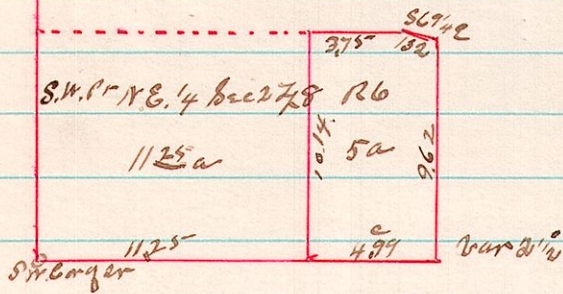 S 69 1/2
3,75 132
S.W. Pr N E. 1/4 Sec 2 T 8 R6
11 25 a
10.14
5 a
9.62
c
11,25
4.99
Var 2 1/2°
S.W. Corner